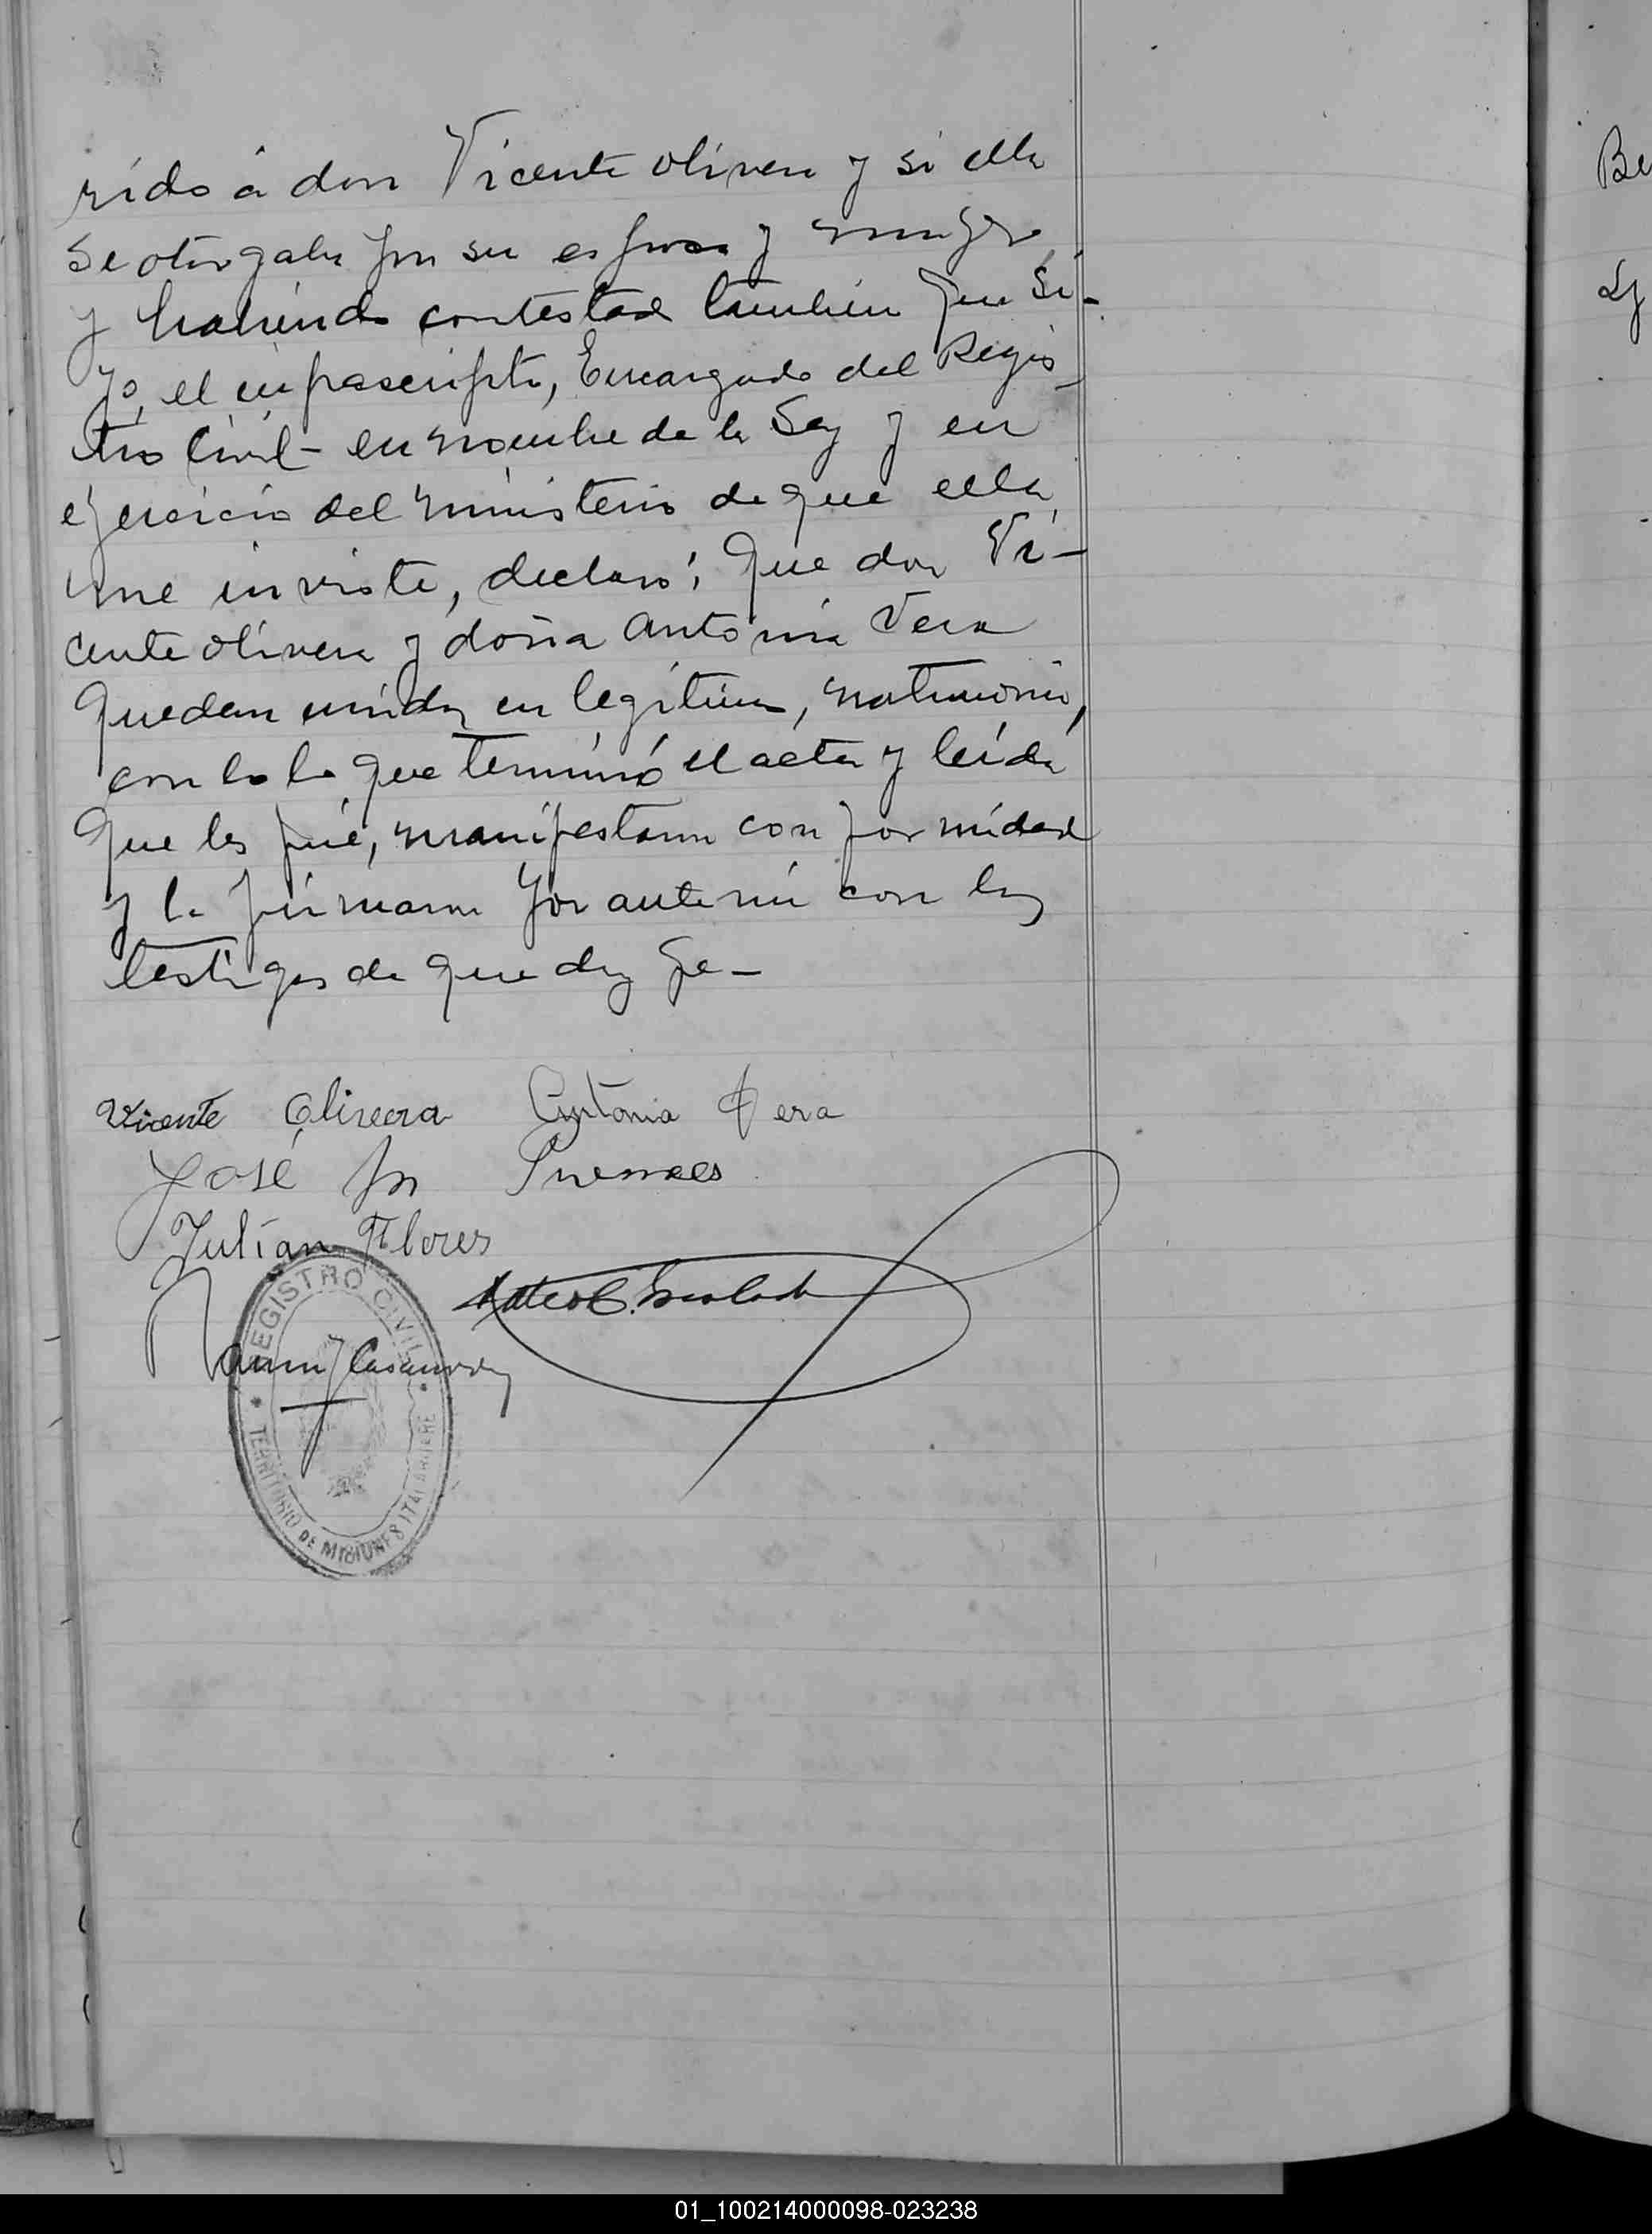 rido á don Vicente Olivera y si ella
se otorgaba por su esposa y muger
y habiendo contestado tambien que si-
Yo, el infrascripto, Encargado del Regis
tro Civil - en nombre de la Ley y en
ejercicio del ministerio de que ella
me inviste, declaro: Que don Vi-
cente Olivera y doña Antonia Vera
quedan unidos en legitimo, matrimonio,
con lo lo que terminó el acta y leida
que les fué, manifestaron conformidad
y la firmaron por ante mi con los
testigos de que doy fe-
Vicente Olivera Antonia Vera
José M
Julián Flores
REGISTRO CIVIL
TERRITORIO DE MISIONES ITACARUARE
Be
01_100214000098-023238